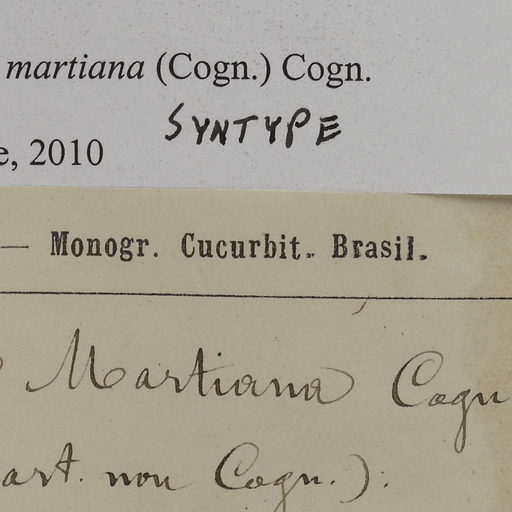 martiana (Cogn.) Cogn.
SYNTYPE
e, 2010
— Monogr. Cucurbit. Brasil.
Martiana Cogn
art. non Cogn.):